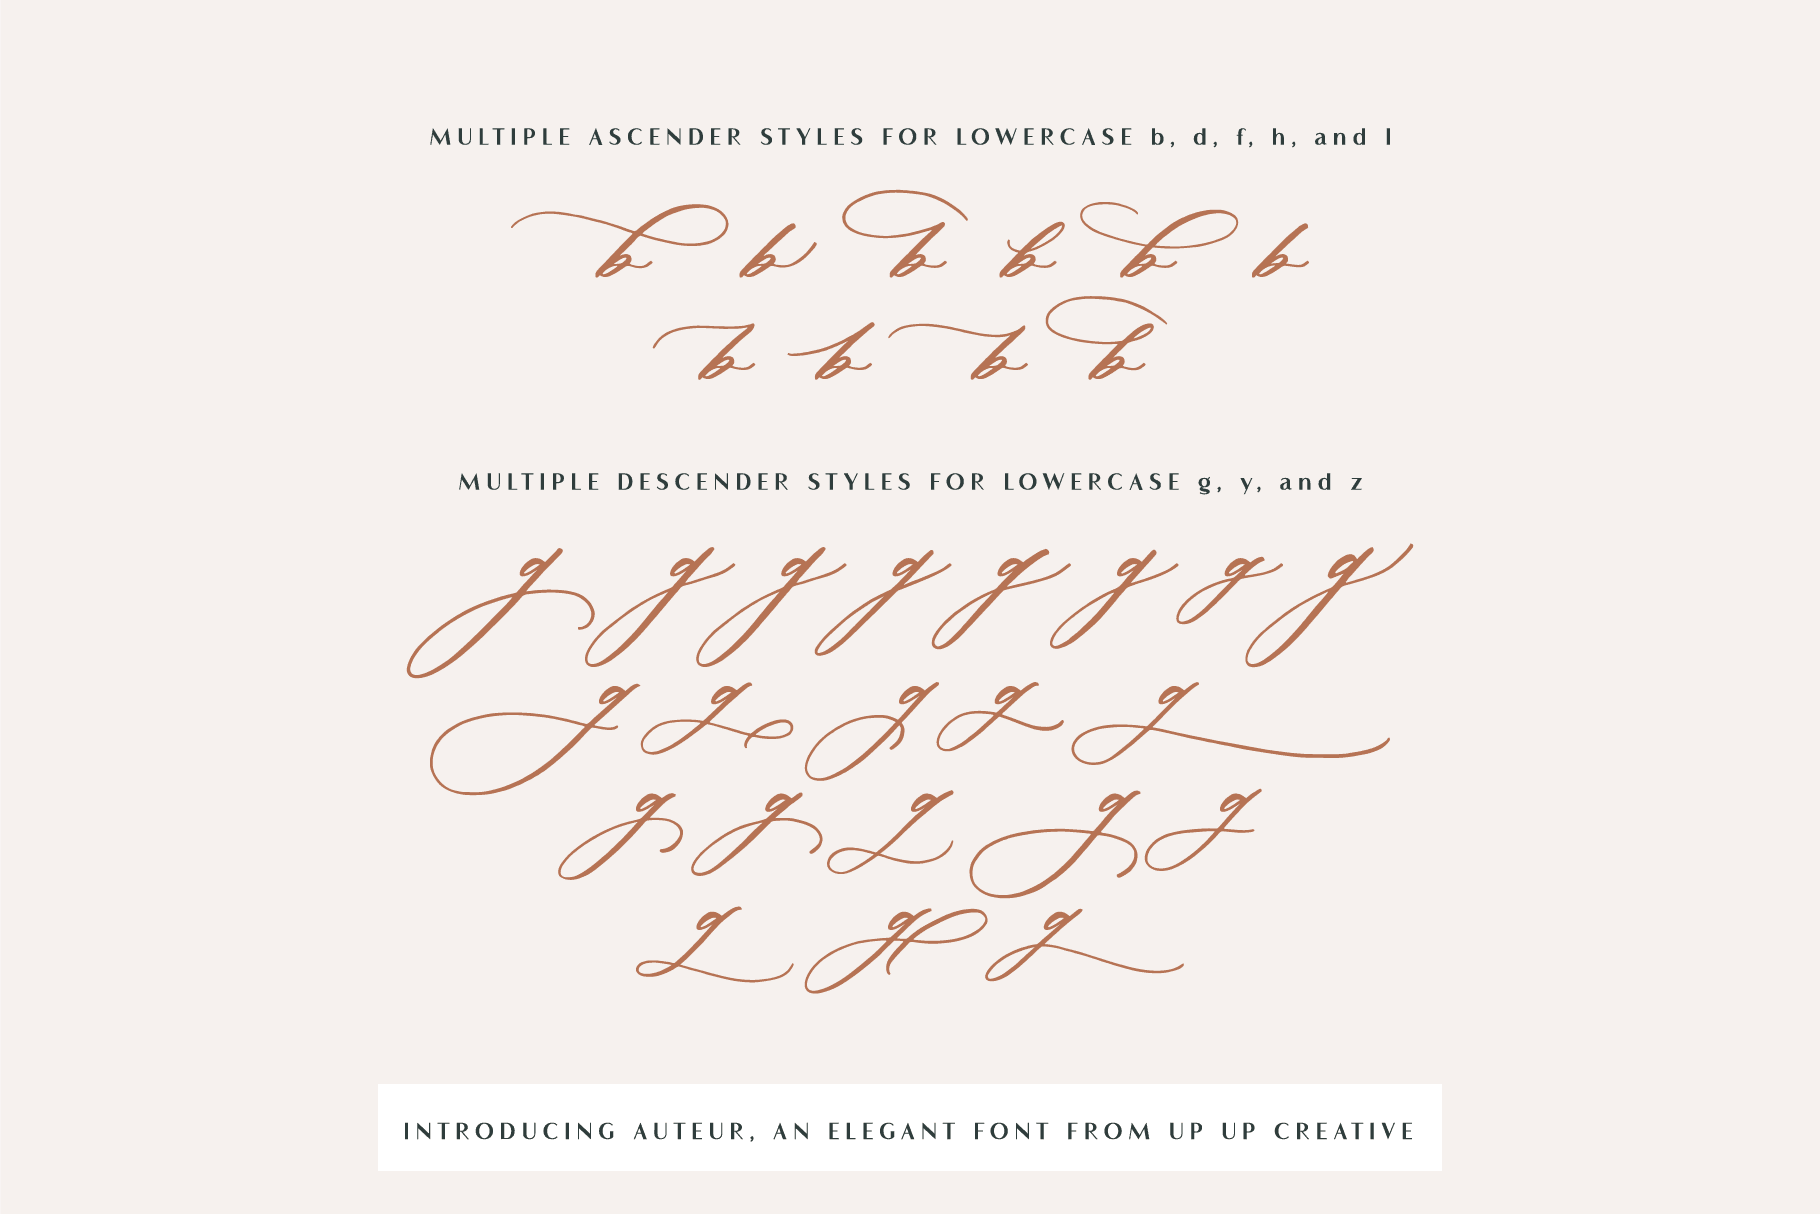 MULTIPLE ASCENDER STYLES FOR LOWERCASE b, d, f, h, and l
b b b b b b
b b b b
MULTIPLE DESCENDER STYLES FOR LOWERCASE g, y, and z
g g g g g g g g
g g g g g
g g g g g
g g g
INTRODUCING AUTEUR, AN ELEGANT FONT FROM UP UP CREATIVE